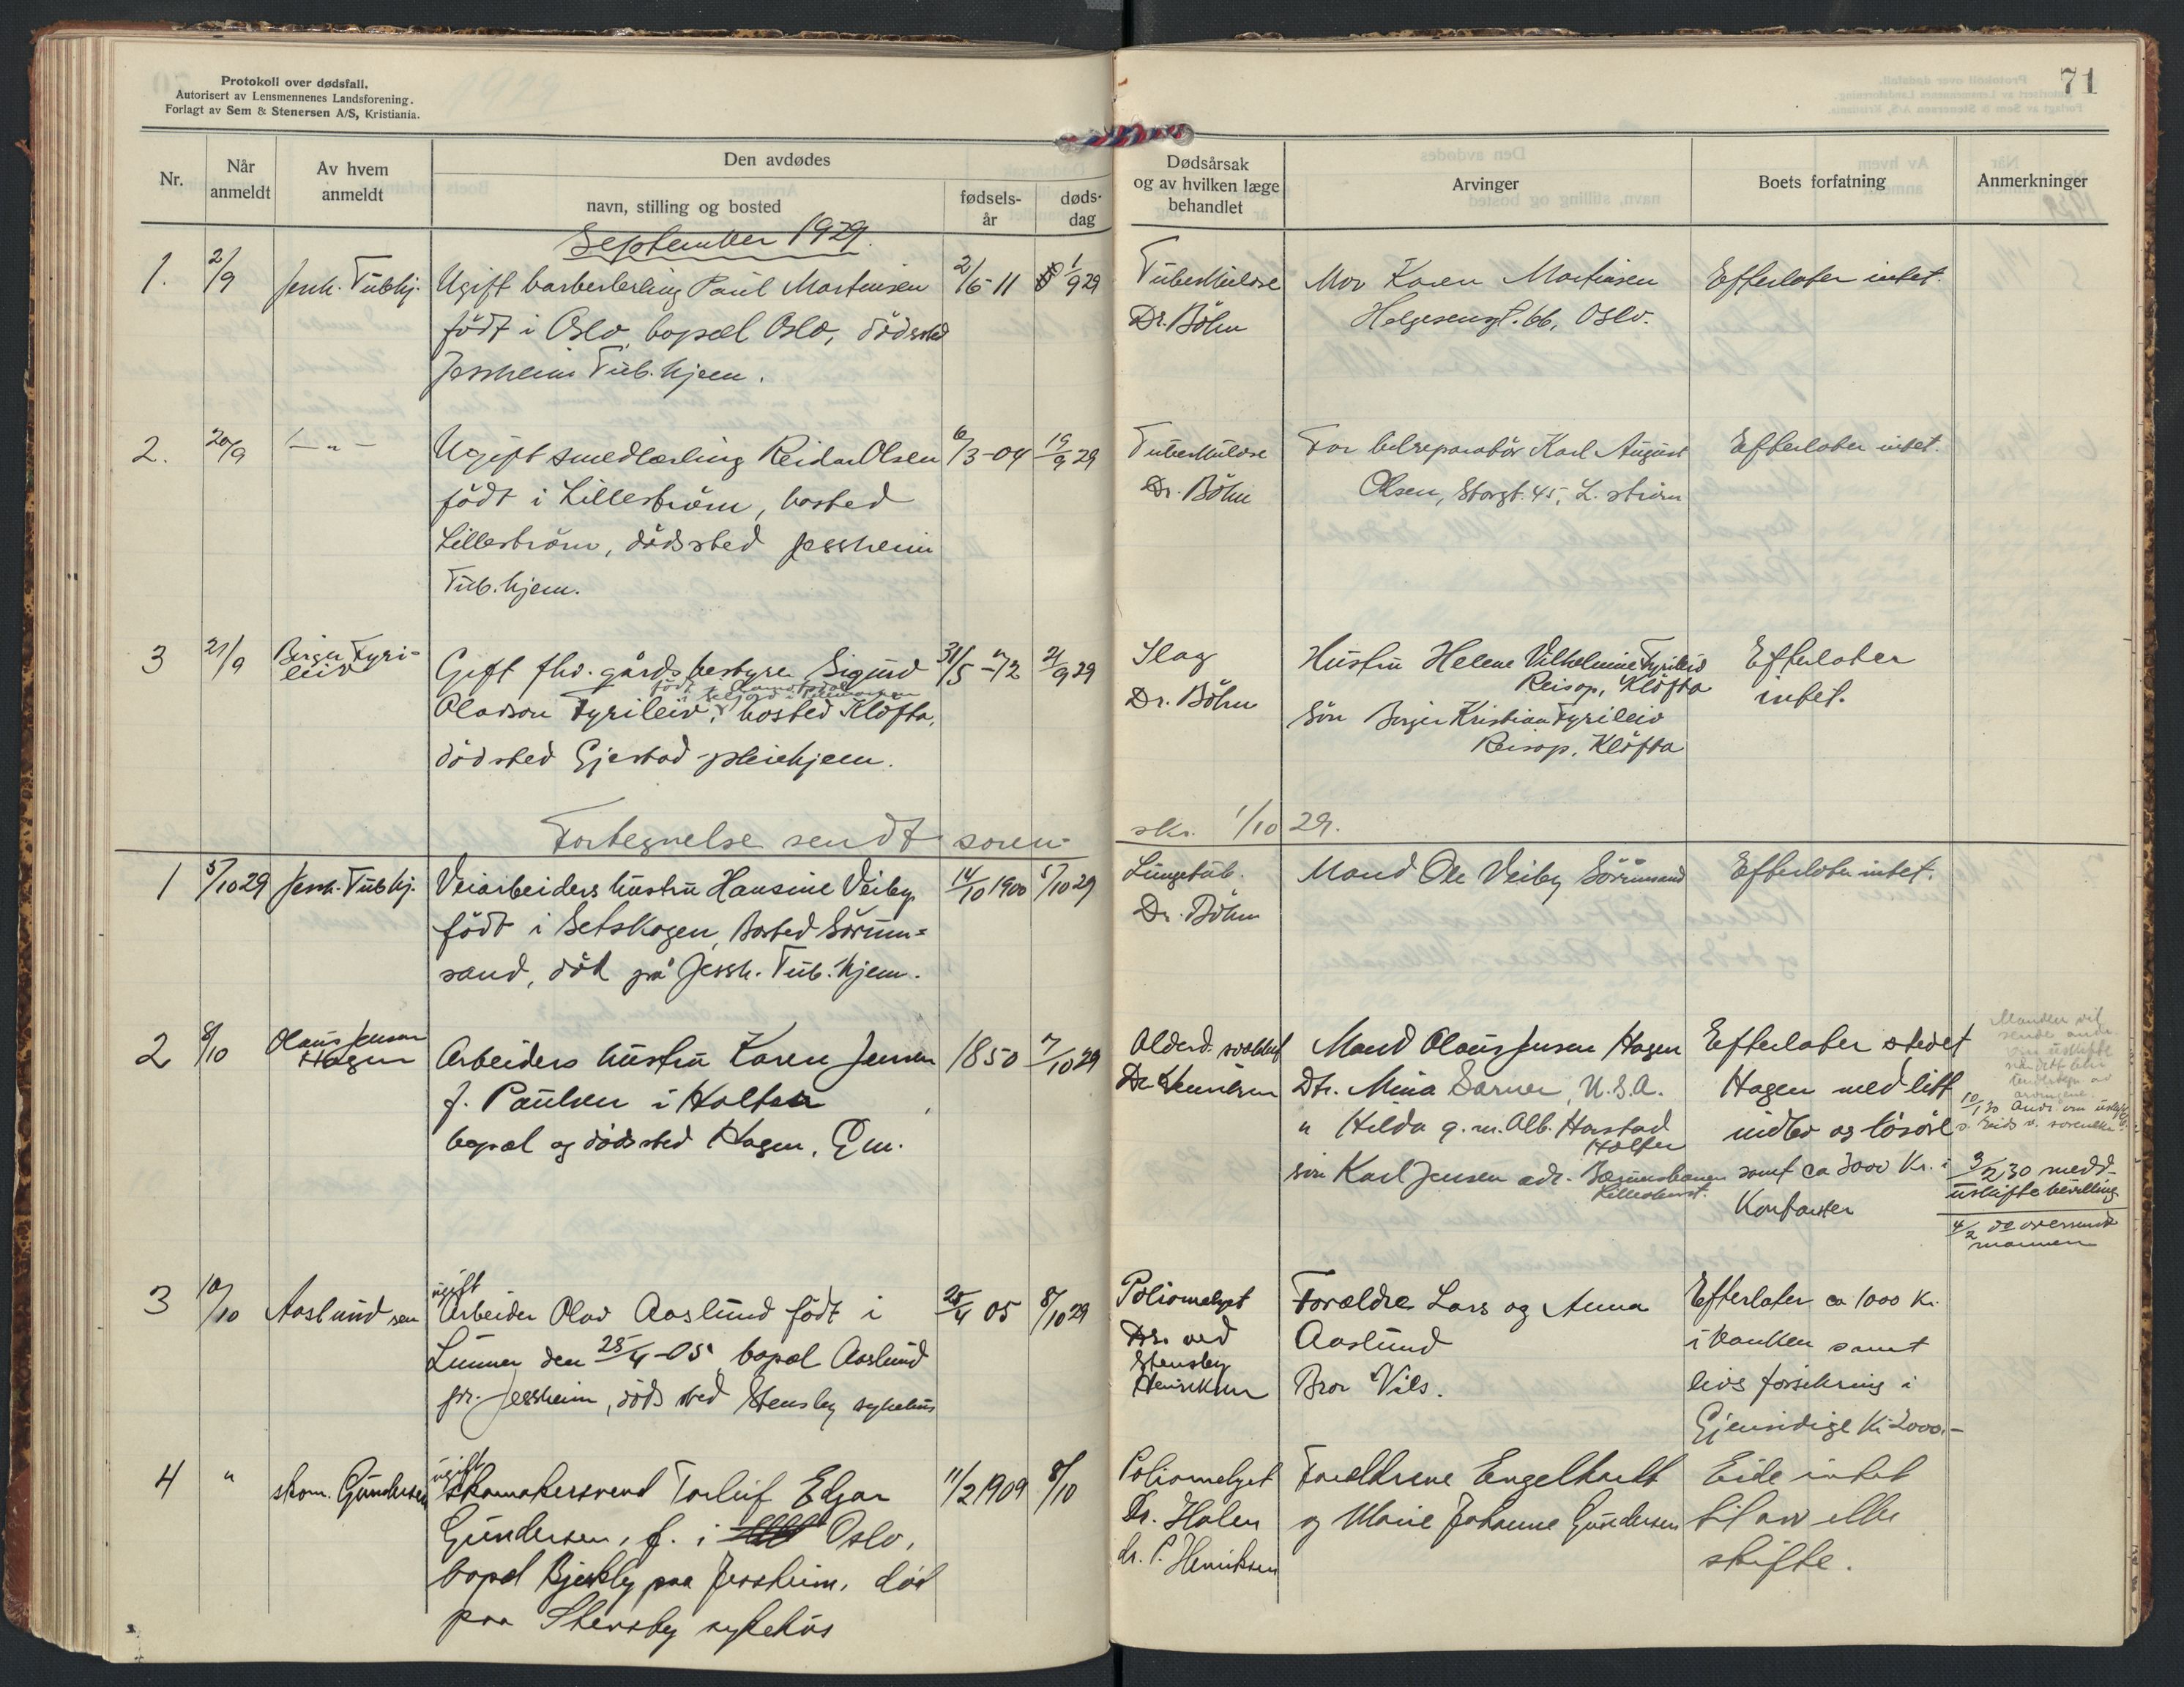 Protokoll over dødsfall.
Autorisert av Lensmennenes Landsforening.
Forlagt av Sem & Stenersen A/S, Kristiania.
71
Nr.
Når anmeldt
Av hvem anmeldt
Den avdødes
navn, stilling og bosted
fødsels-år
døds-dag
Dødsårsak og av hvilken læge behandlet
Arvinger
Boets forfatning
Anmerkninger
September 1929.
1. 2/9 Jessh. Tubhj. Ugift barberlerling Paul Martinsen 2/6-11 1/9 29 Tuberkulose Mor Karen Martinsen Efterlater intet.
født i Oslo, bopæl Oslo, dødssted Dr. Böhm Helgesensgt. 66, Oslo.
Jessheim Tub. hjem.
2. 20/9 — " — Ugift smedlærling Reidar Olsen 6/3-04 19/9 29 Tuberkulose Far bilreparatør Karl August Efterlater intet.
født i Lillestrøm, bosted Dr. Böhm Olsen, Storgt. 45, L. strøm
Lillestrøm, dødssted Jessheim
Tub. hjem.
3 21/9 Birger Fyri- Gift fhv. gårdsbestyrer Sigurd 31/5-72 21/9 29 Slag Hustru Helene Vilhelmine Fyrileiv Efterlater
leiv født i Telemarken Reisop, Kløfta intet.
Olavson Fyrileiv, bosted Kløfta, Dr. Böhm Søn Birger Kristian Fyrileiv
dødsted Gjestad pleiehjem. Reisop, Kløfta
Fortegnelse sendt soren-skr. 1/10 29.
1 5/10 29 Jessh. Tubhj. Veiarbeiders hustru Hansine Veiby 14/10 1900 5/10 29 Lungetub. Mand Ole Veiby Sørumsand Efterlater intet.
født i Setskogen, Bosted Sørum- Dr. Böhm
sand, død på Jessh. Tub. hjem.
2 8/10 Olaus Jensen Arbeiders hustru Karen Jensen 1850 7/10 29 Alderd. Mand Olaus Jensen Hagen Efterlater stedet
Hagen f. Paulsen i Holter Dr. Henriksen Dtr. Mina Larner, U.S.A. Hagen med litt
bopæl og dødssted Hagen, " Hilda g. m. Alb. Harstad indbo og løsøre
Holter
søn Karl Jensen adr. samt ca 3000 Kr. i
Kontanter
Manden vil
sende
10/1 30 Ands. om
3/2 30 medd.
uskiftebevilling
4/2 oversendt
mannen
3 10/10 Aaslund sen ugift
Arbeider Olav Aaslund født i 25/4 05 8/10 29 Poliomelyt Forældre Lars og Anna Efterlater ca 1000 Kr.
Lunner den 25/4-05 bopæl Aaslund Dr. ved Aaslund i banken samt
pr. Jessheim, dødssted Stensby sykehus Stensby Bror Nils. livsforsikring i
Henriksen Gjensidige Kr 2000.-
4 " skom. Gundersen ugift
Skomakersvend Torleif Edgar 11/2 1909 8/10 Poliomelyt Foreldrene Engelhardt Eide intet
Gundersen, f. i Oslo, Dr. Holen og Marie Johanne Gundersen til arv eller
bopæl Bjerkly paa Jessheim, død dr. P. Henriksen skifte.
paa Stensby sykehus